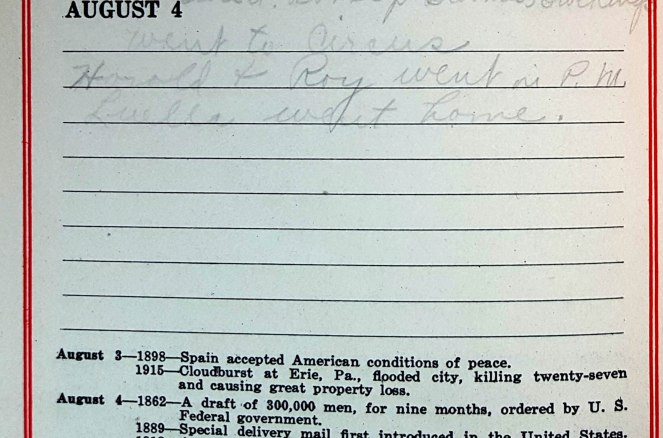 AUGUST 4
went to Circus
& Roy went in P.M.
Luella went home.
August 3—1898—Spain accepted American conditions of peace.
1915—Cloudburst at Erie, Pa., flooded city, killing twenty-seven
and causing great property loss.
August 4—1862—A draft of 300,000 men, for nine months, ordered by U. S.
Federal government.
1889—Special delivery mail first introduced in the United States.